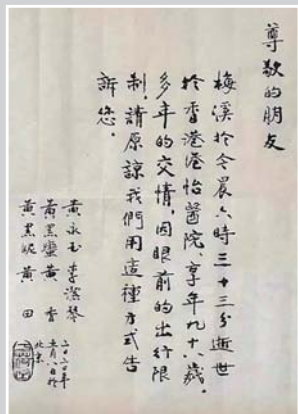 尊敬的朋友
梅溪於今晨六時三十三分逝世
於香港港怡醫院。享年九十八歲。
多年的交情，因眼前的出行限
制，請原諒我們用這種方式告
訴您。
黃永玉 李潔琴
黃黑蠻 黃香
黃黑妮 黃田
二〇二〇年
五月八日於
北京